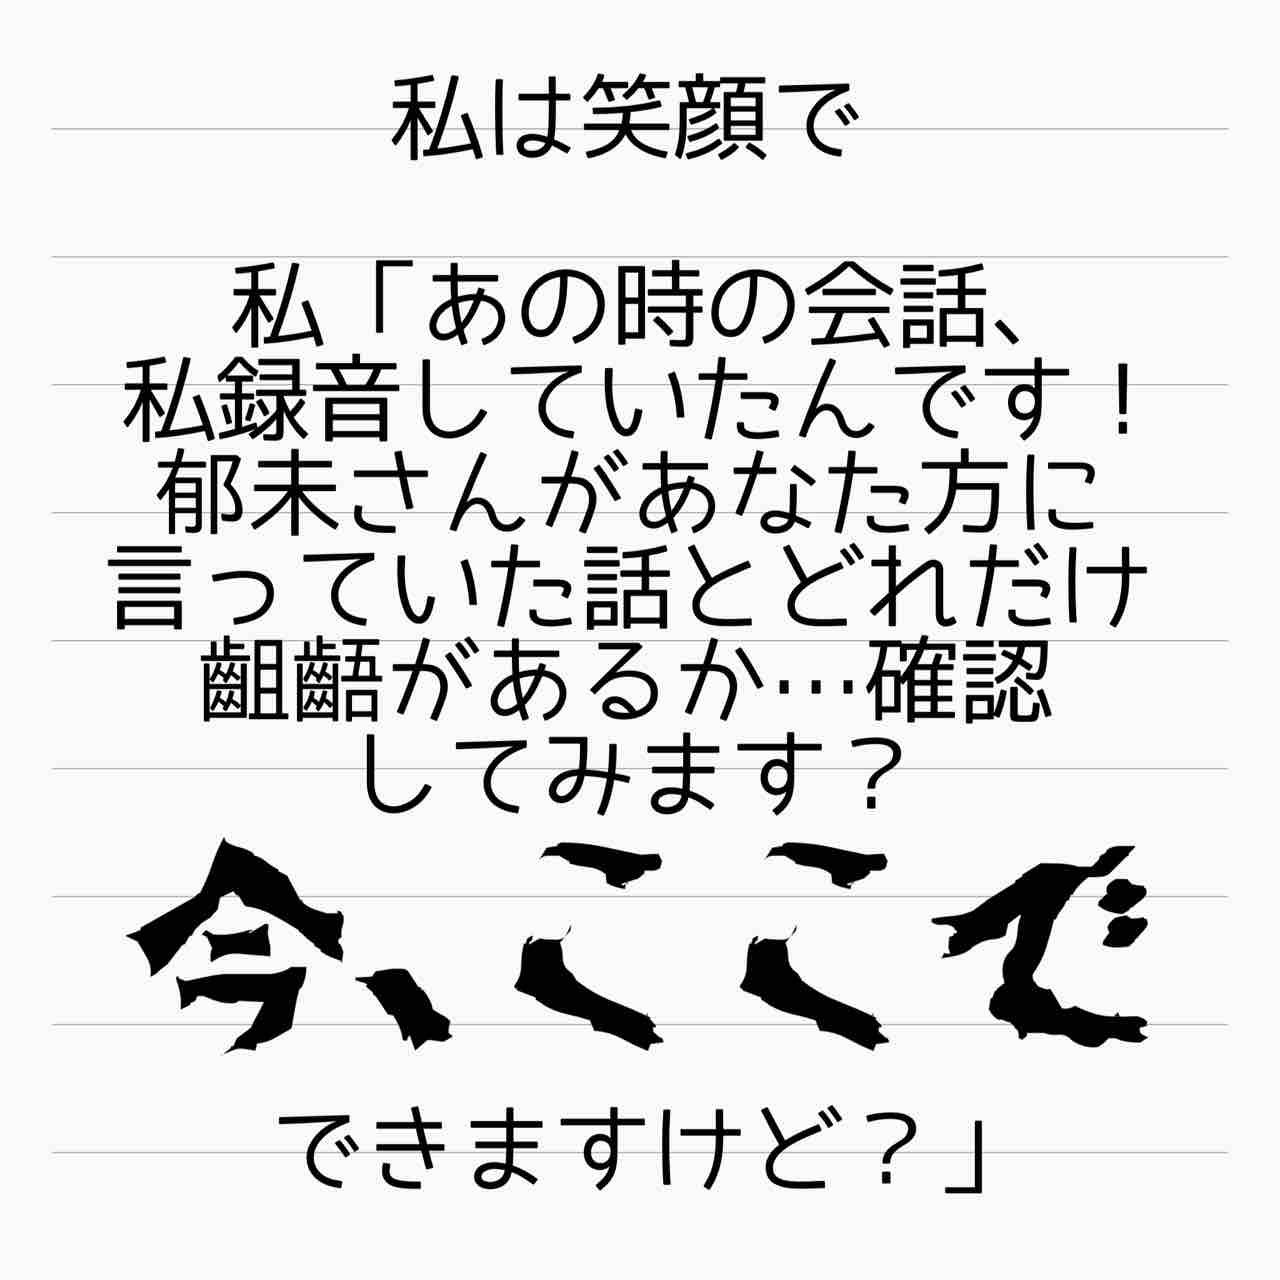 私は笑顔で
私「あの時の会話、
私録音していたんです！
郁未さんがあなた方に
言っていた話とどれだけ
齟齬があるか…確認
してみます？
今、ここで
できますけど？」